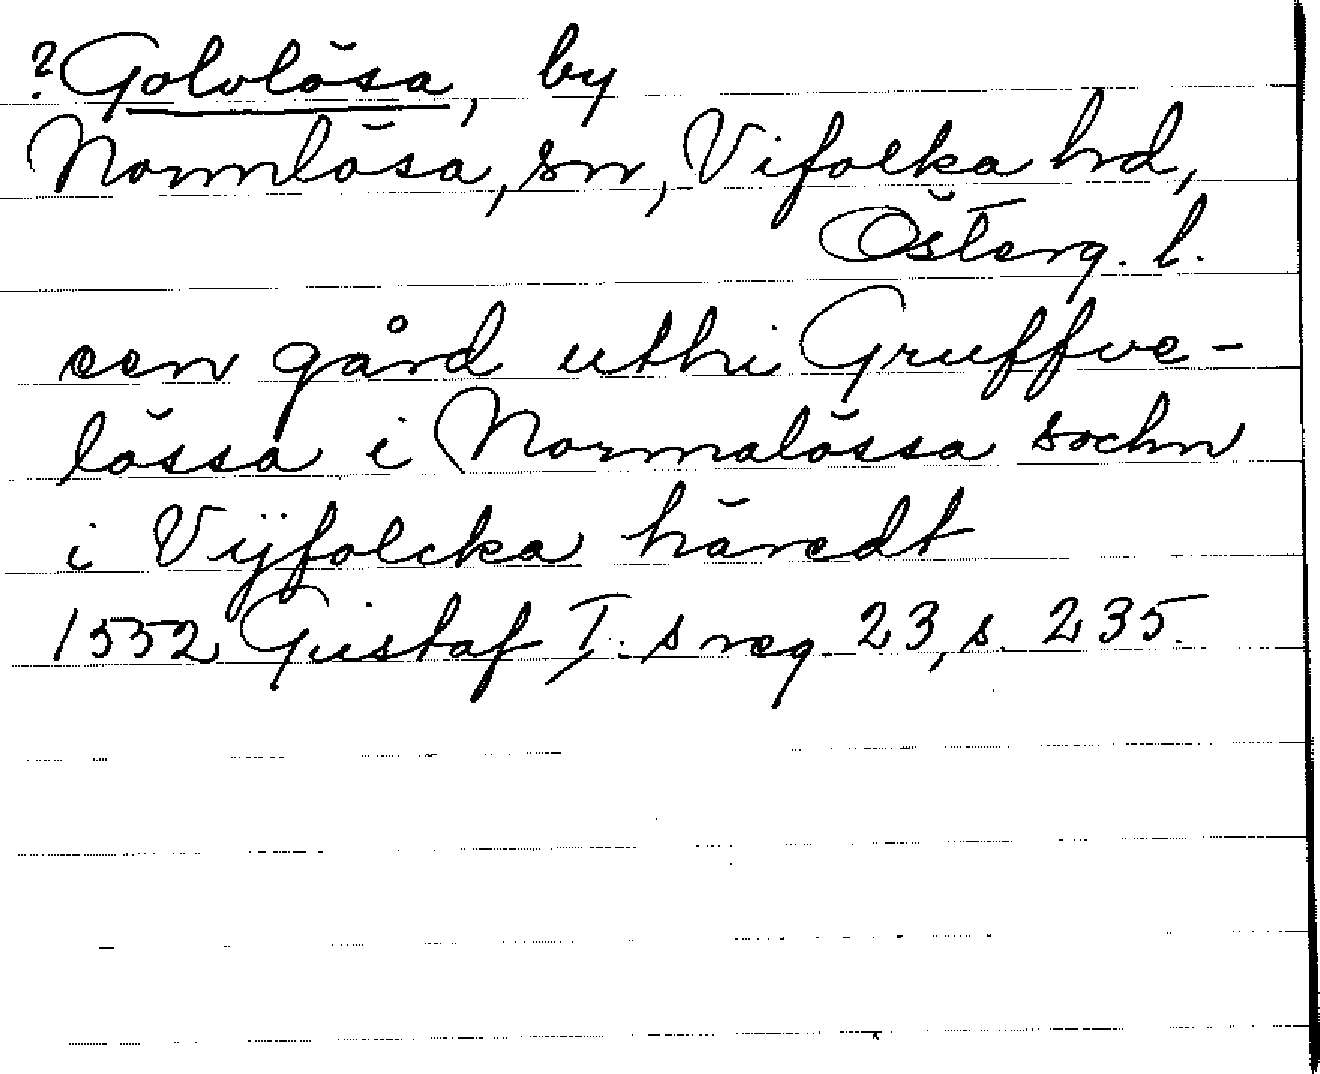 ?Golvlösa, by
Normlösa, sn, Vifolka hrd,
Österg. l.
een gård uthi Gruffve-
lössa i Normalössa sochn
i Vÿfolcka häredt
1552 Gustaf I:s reg. 23, s. 235.